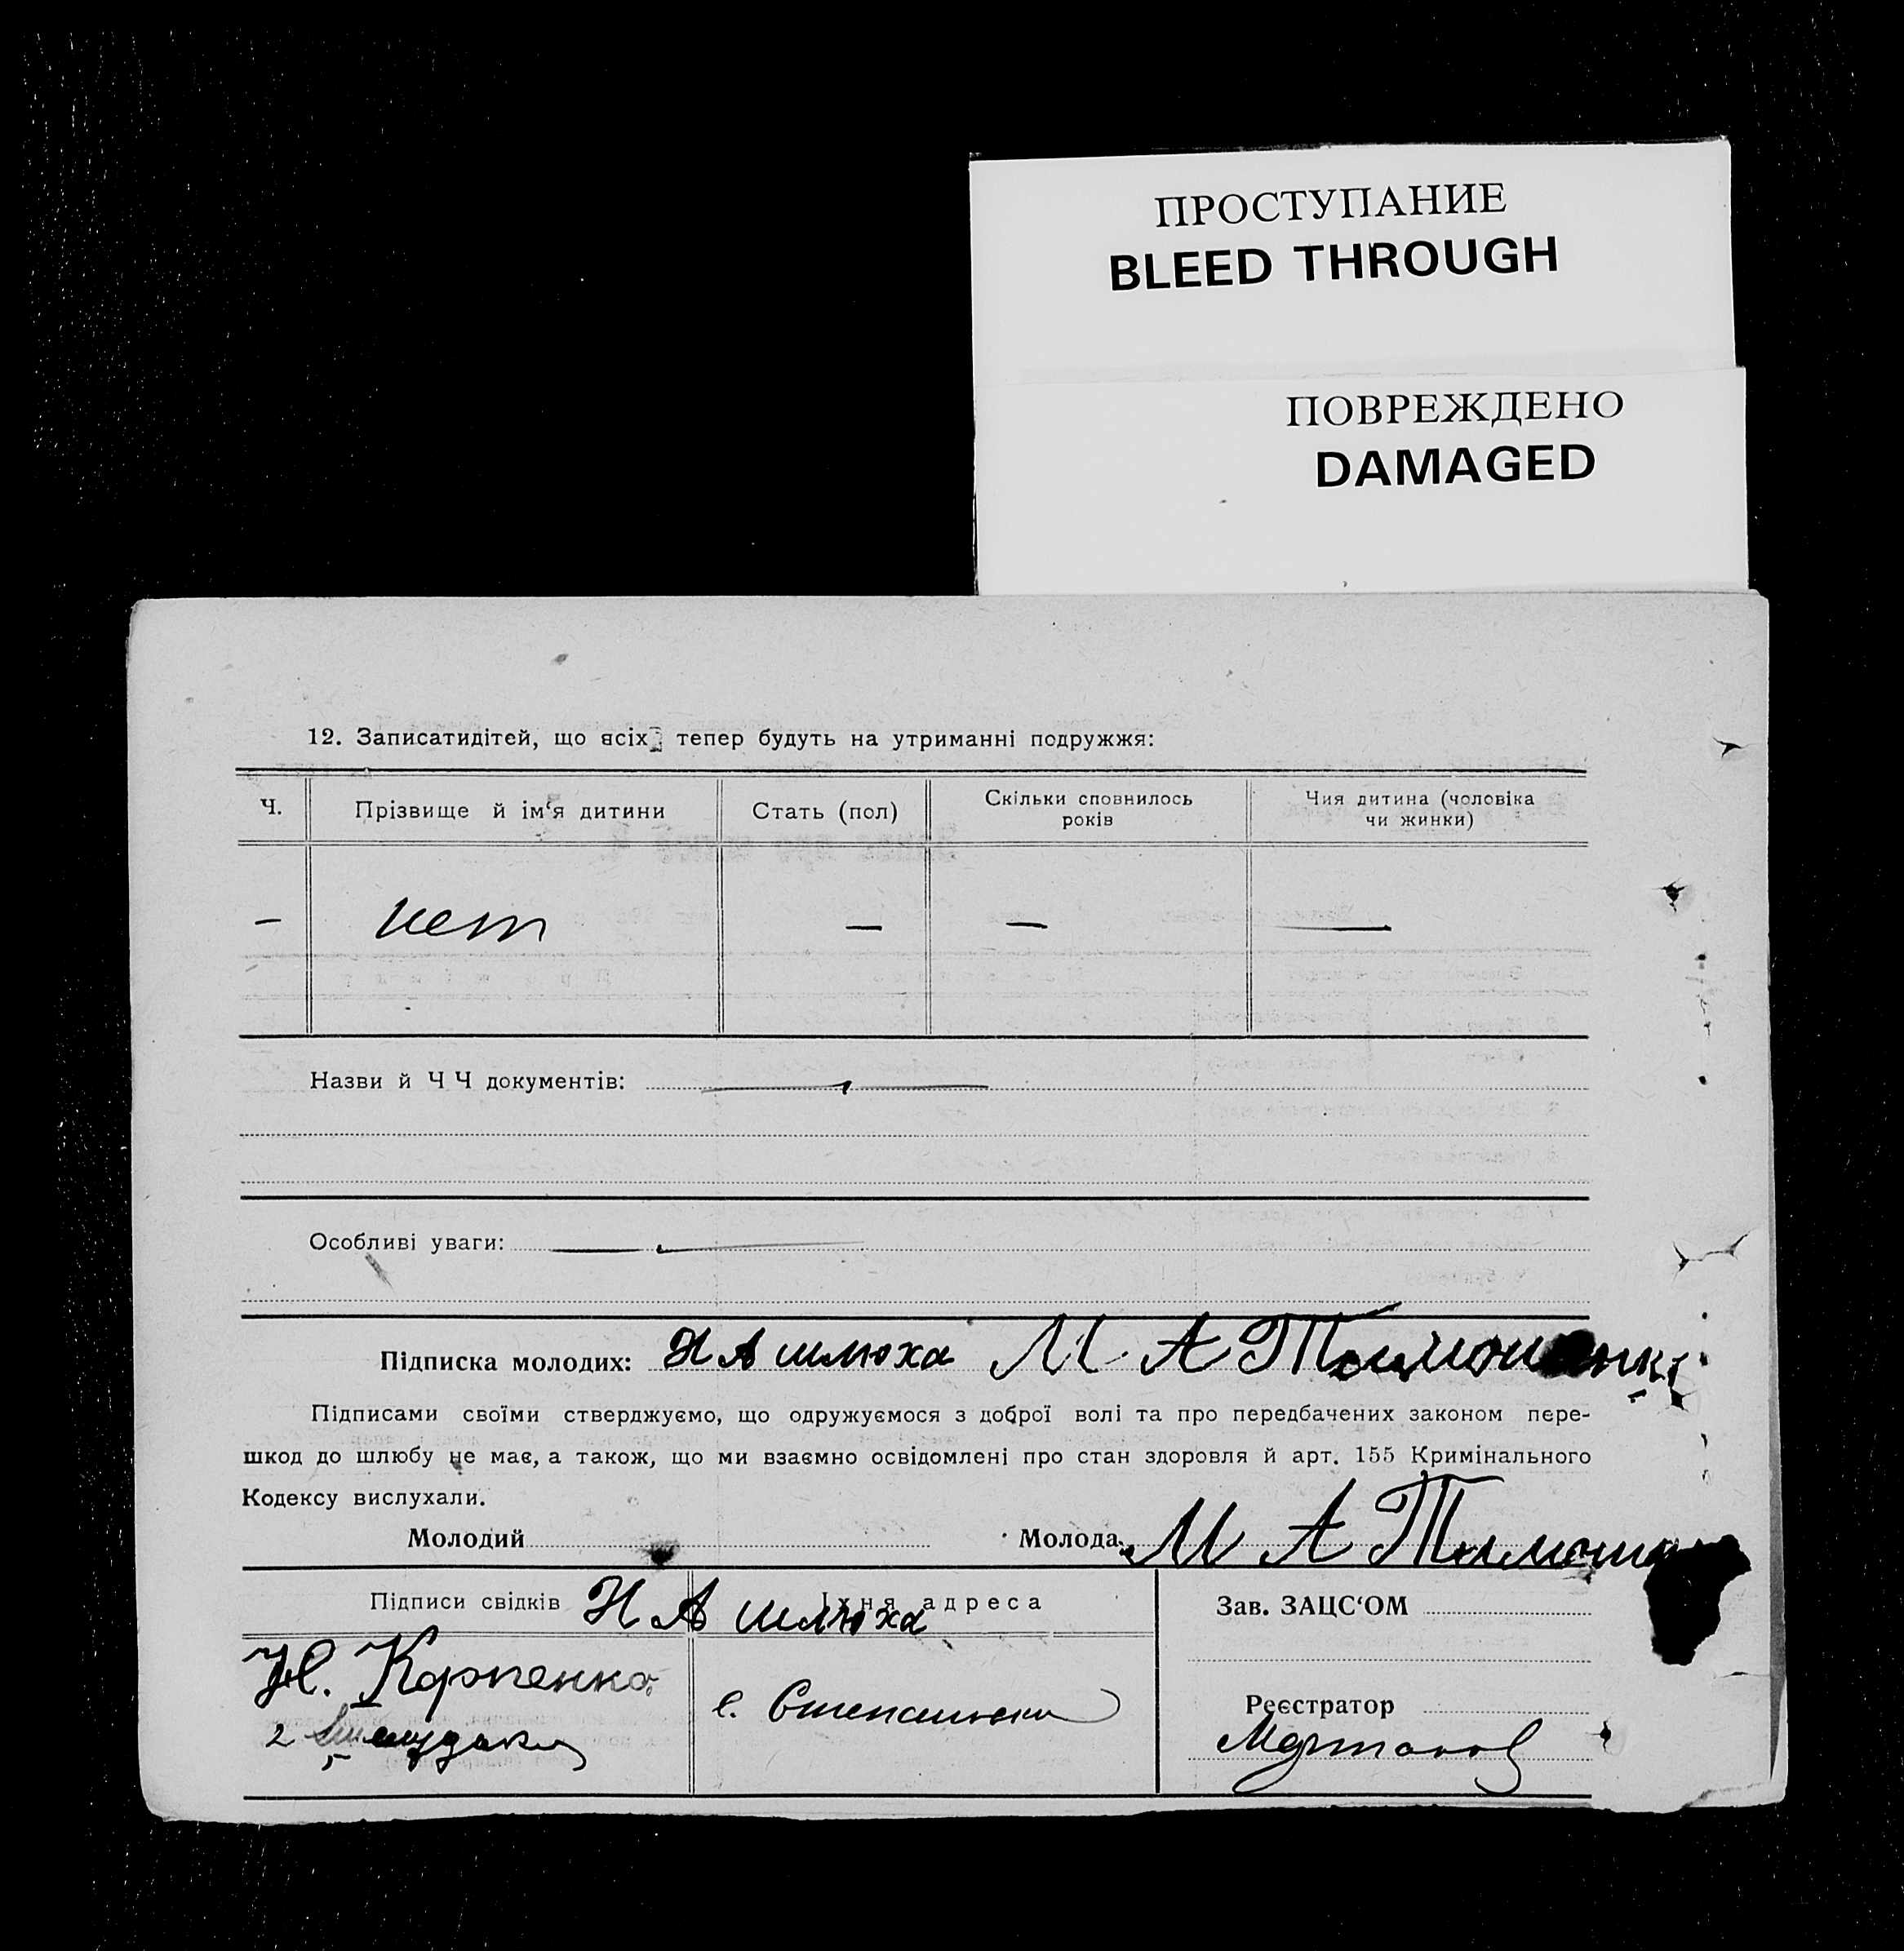 ПРОСТУПАНИЕ
BLEED THROUGH
ПОВРЕЖДЕНО
DAMAGED
12. Записатидітей, що всіх тепер будуть на утриманні подружжя:
Ч. Прізвище й ім‘я дитини Стать (пол) Скільки сповнилось років Чия дитина (чоловіка чи жинки)
— нет — — —
Назви й Ч Ч документів: —
Особливі уваги: —
Підписка молодих: Н А Шлюха М А Тимошенк
Підписами своїми стверджуємо, що одружуємося з доброї волі та про передбачених законом пере-
шкод до шлюбу не має, а також, що ми взаємно освідомлені про стан здоровля й арт. 155 Кримінального
Кодексу вислухали.
Молодий Молода М А Тимоше
Підписи свідків Н А Шлюха Їхня адреса Зав. ЗАЦС‘ОМ
Н. Карпенко
с. Реєстратор
2